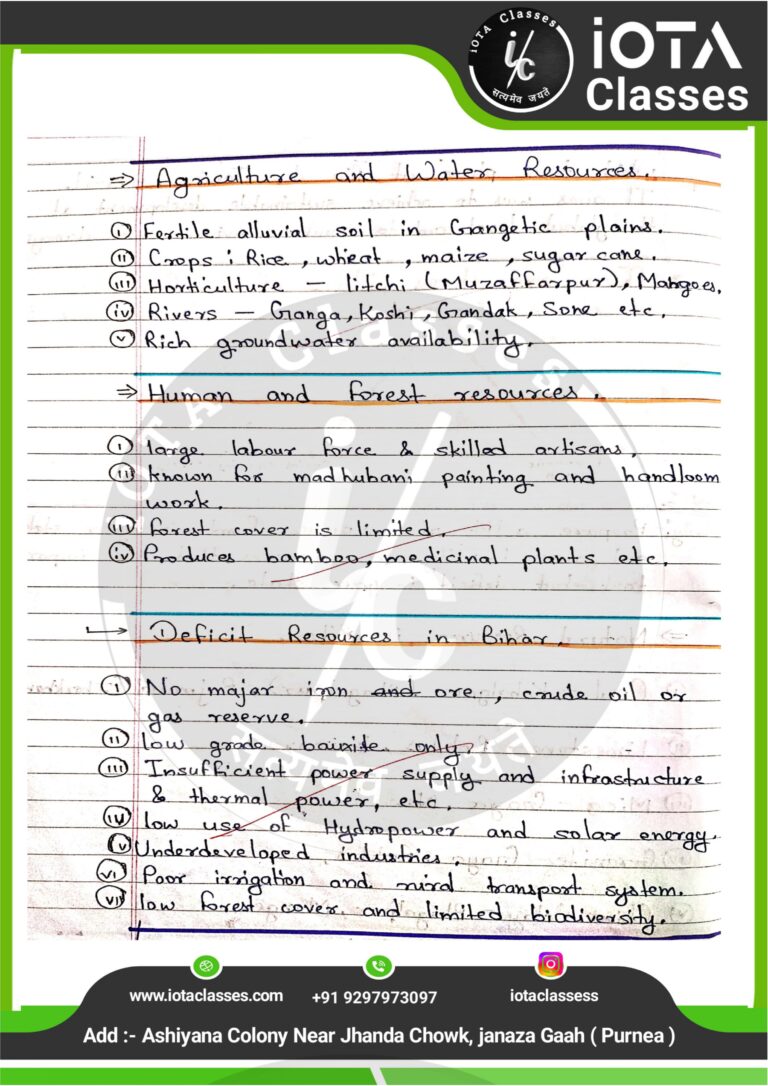 iOTA Classes
i/c
सत्यमेव जयते
iOTA
Classes
⇒ Agriculture and Water Resources.
(i) Fertile alluvial soil in Gangetic plains.
(ii) Crops : Rice, wheat, maize, sugar cane.
(iii) Horticulture – litchi (Muzaffarpur), Mangoes,
(iv) Rivers – Ganga, Koshi, Gandak, Sone etc.
(v) Rich groundwater availability.
⇒ Human and forest resources.
(i) large labour force & skilled artisans,
(ii) known for madhubani painting and handloom
work.
(iii) forest cover is limited.
(iv) Produces bamboo, medicinal plants etc.
→ Deficit Resources in Bihar.
(i) No majar iron and ore, crude oil or
gas reserve.
(ii) low grade bauxite only.
(iii) Insufficient power supply and infrastructure
& thermal power, etc.
(iv) low use of Hydropower and solar energy.
(v) Underdeveloped industries.
(vi) Poor irrigation and transport system.
(vii) low forest cover and limited biodiversity.
iOTA Classes
i/c
सत्यमेव जयते
www.iotaclasses.com
+91 9297973097
iotaclassess
Add :- Ashiyana Colony Near Jhanda Chowk, janaza Gaah ( Purnea )